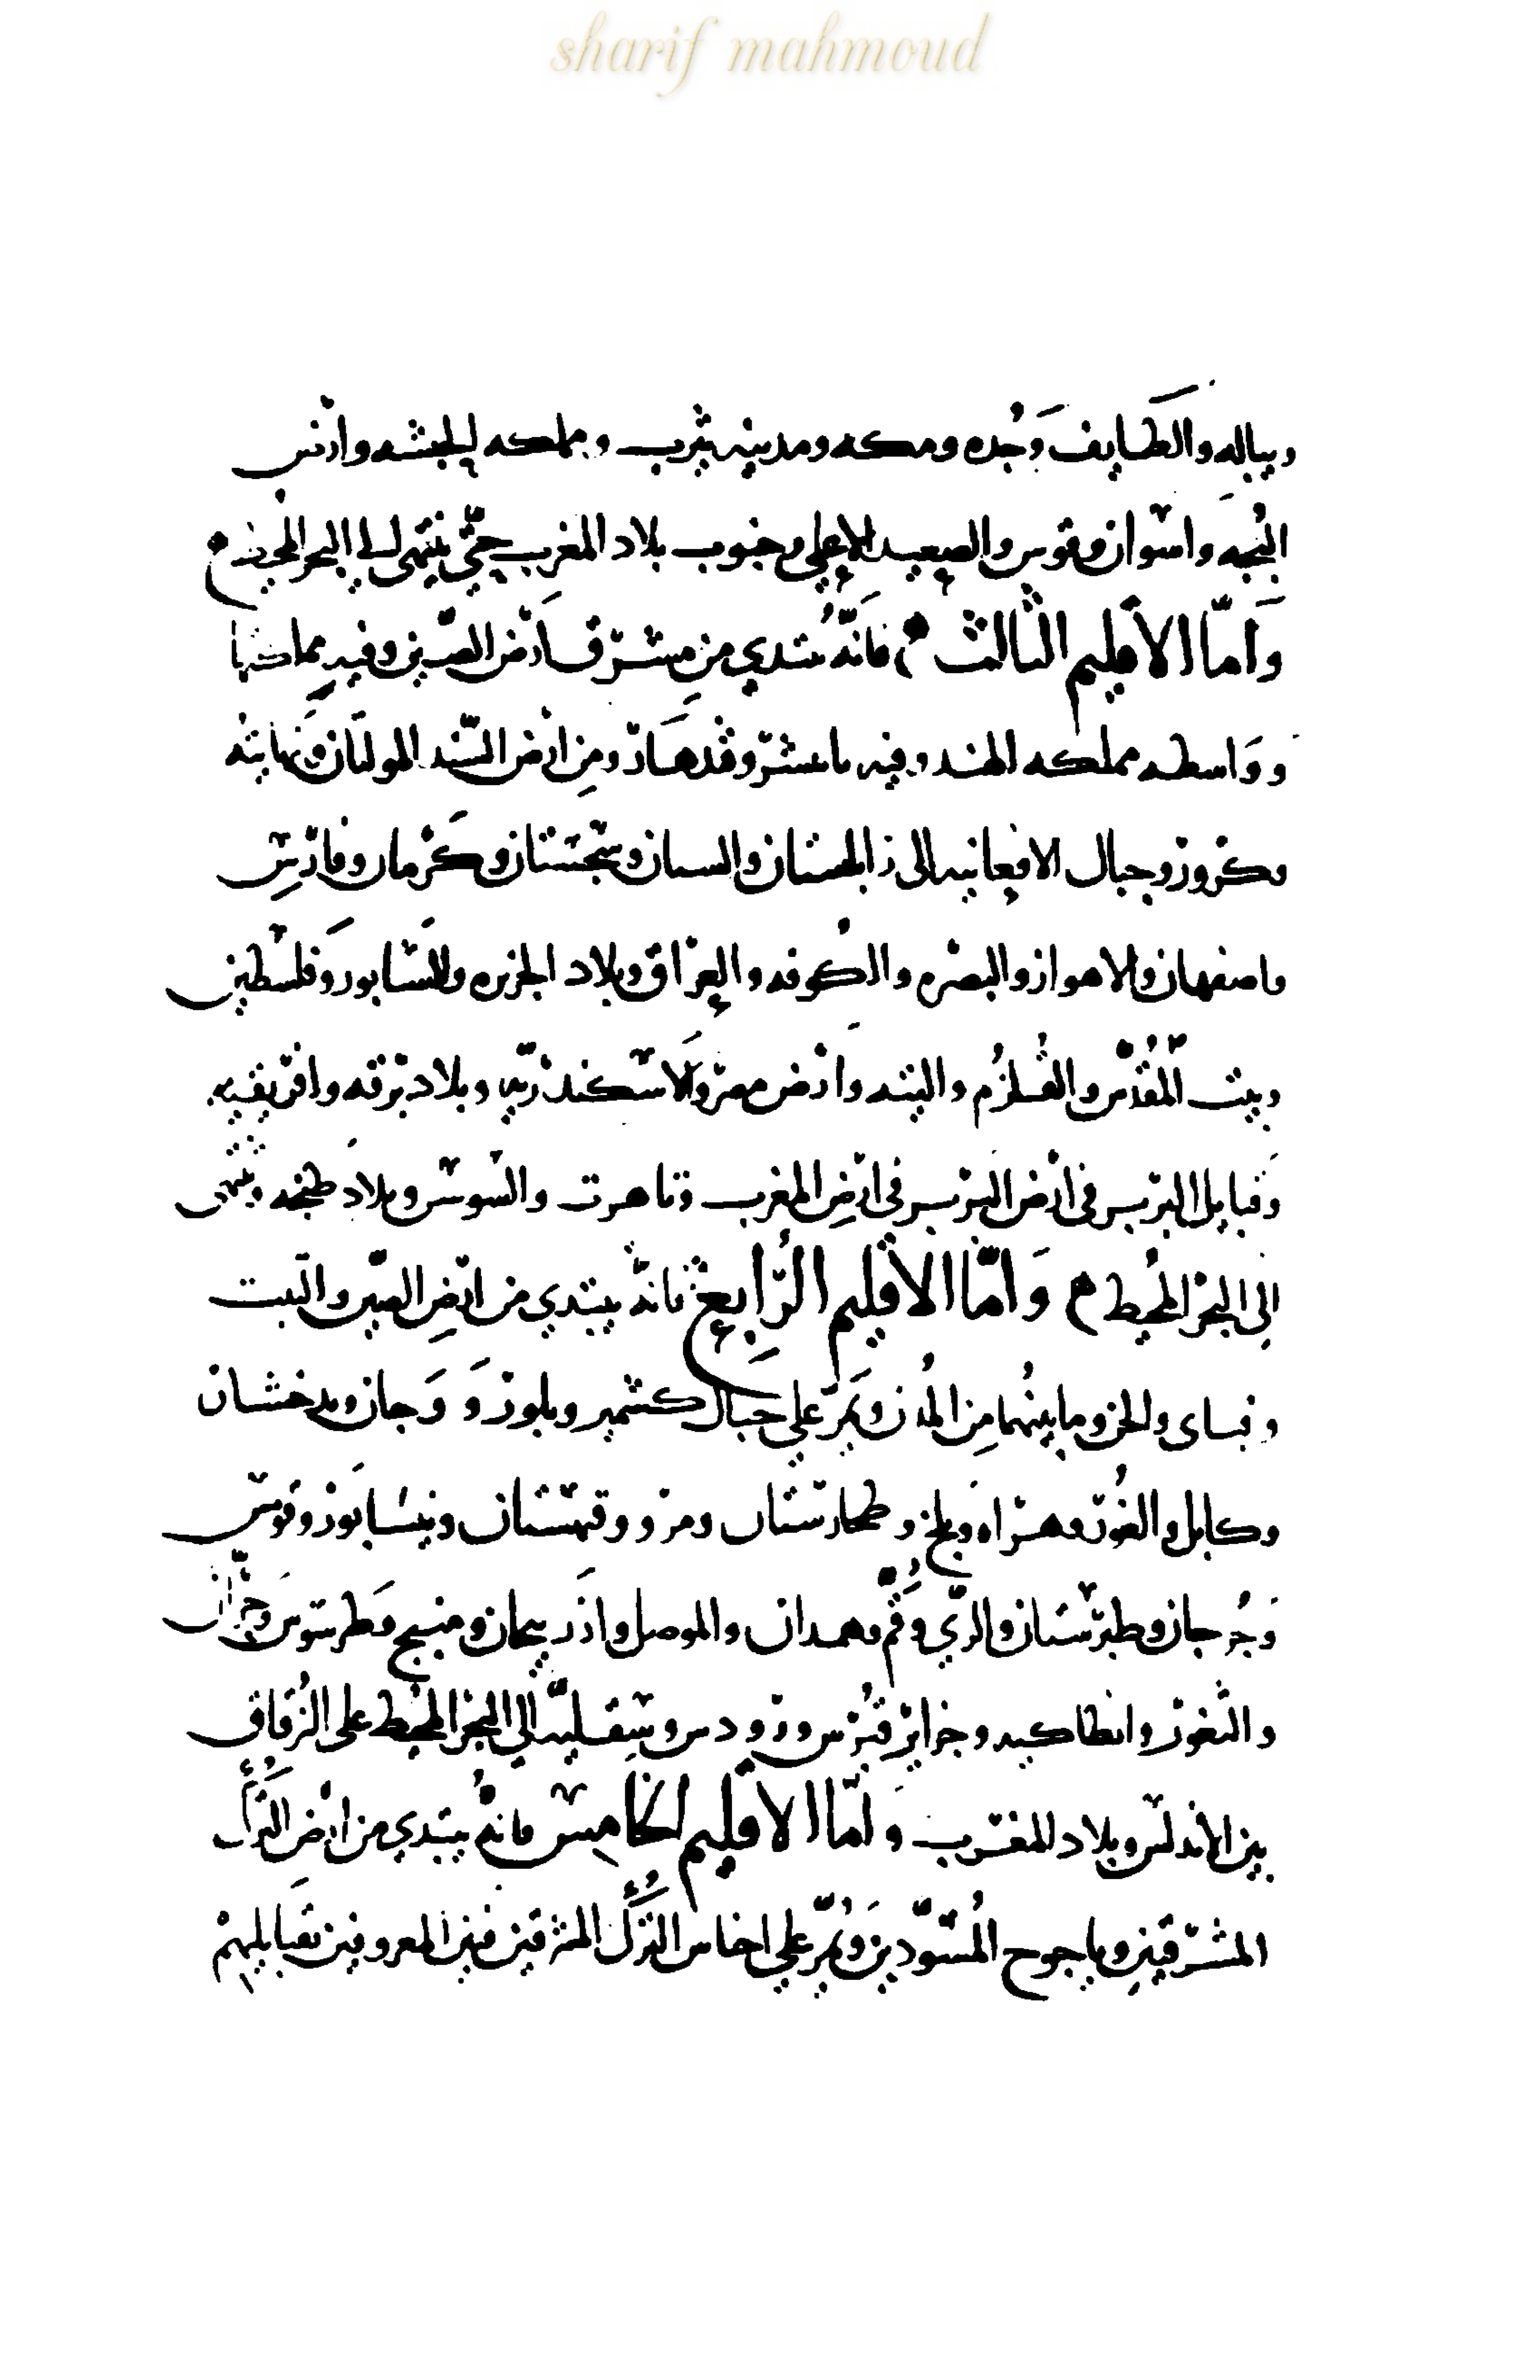 sharif mahmoud
وبباله والطايف وَجُده ومكه ومدينه يثرب ومملكه الحبشه وارض
البُجه واسوان وقوس والصعيد الاعلي وجنوب بلاد المغرب حتّي ينتهى الى البحر المحيط
وَامّا الاقليم الثالث فانّهُ يبتدي من مشرق ارْض الصّين وفيه مملكتها
ووَاسطه مملكه الهند وفيه تانيشر وقندهار ومِن ارْض السّند المولتان ونهايته
وكرور وجبال الافغانيه الى زابلستان والسان وسجستان وكَرْمان وفارْس
واصفهان والاهواز والبصره والكُوفه والعراق وبلاد الجزيره وفلسطين
وبيت المُقدّس والقُلزُم والتيه وارْض مصر والاسكندريّه وبلاد برْقه وافريقيه
وَقبايل البرْبر فى ارْض البرْبر فى ارْضِ المغرب وتاهرت والسّوس وبلاد طنجه وينتهى
الِى البحر المُحيط وَامّا الاقليم الرّابع فانّهُ يبتدي من ارْضِ الصّين والتبت
وما بينُهما مِن المُدن ويَمُرّ علي جبال كشمير وبلور وَوَجان وبدخشان
وكابل والغُور وهراه وبلخ وطخارستان ومرو وقهستان ونيسَابور وقومس
وَجُرجان وطبرْستان والرّي وقُمّ وهمدان والموصل واذَربيجان ومنبج وطرسوس وحرّان
والثغور وانطاكيه وجزاير قبُرْس ورودس وسِقليّه الي البحر المحيط على الزُقاق
بين الاندلس وبلاد المغرب وامّا الاقليم الخامِس فانهُ يبتدي من ارْض التُرك
المشرّقين وياجوج المُسَوّدين ويَمُرّ علي اجناس التُرك المعروفين بقبايلهمْ